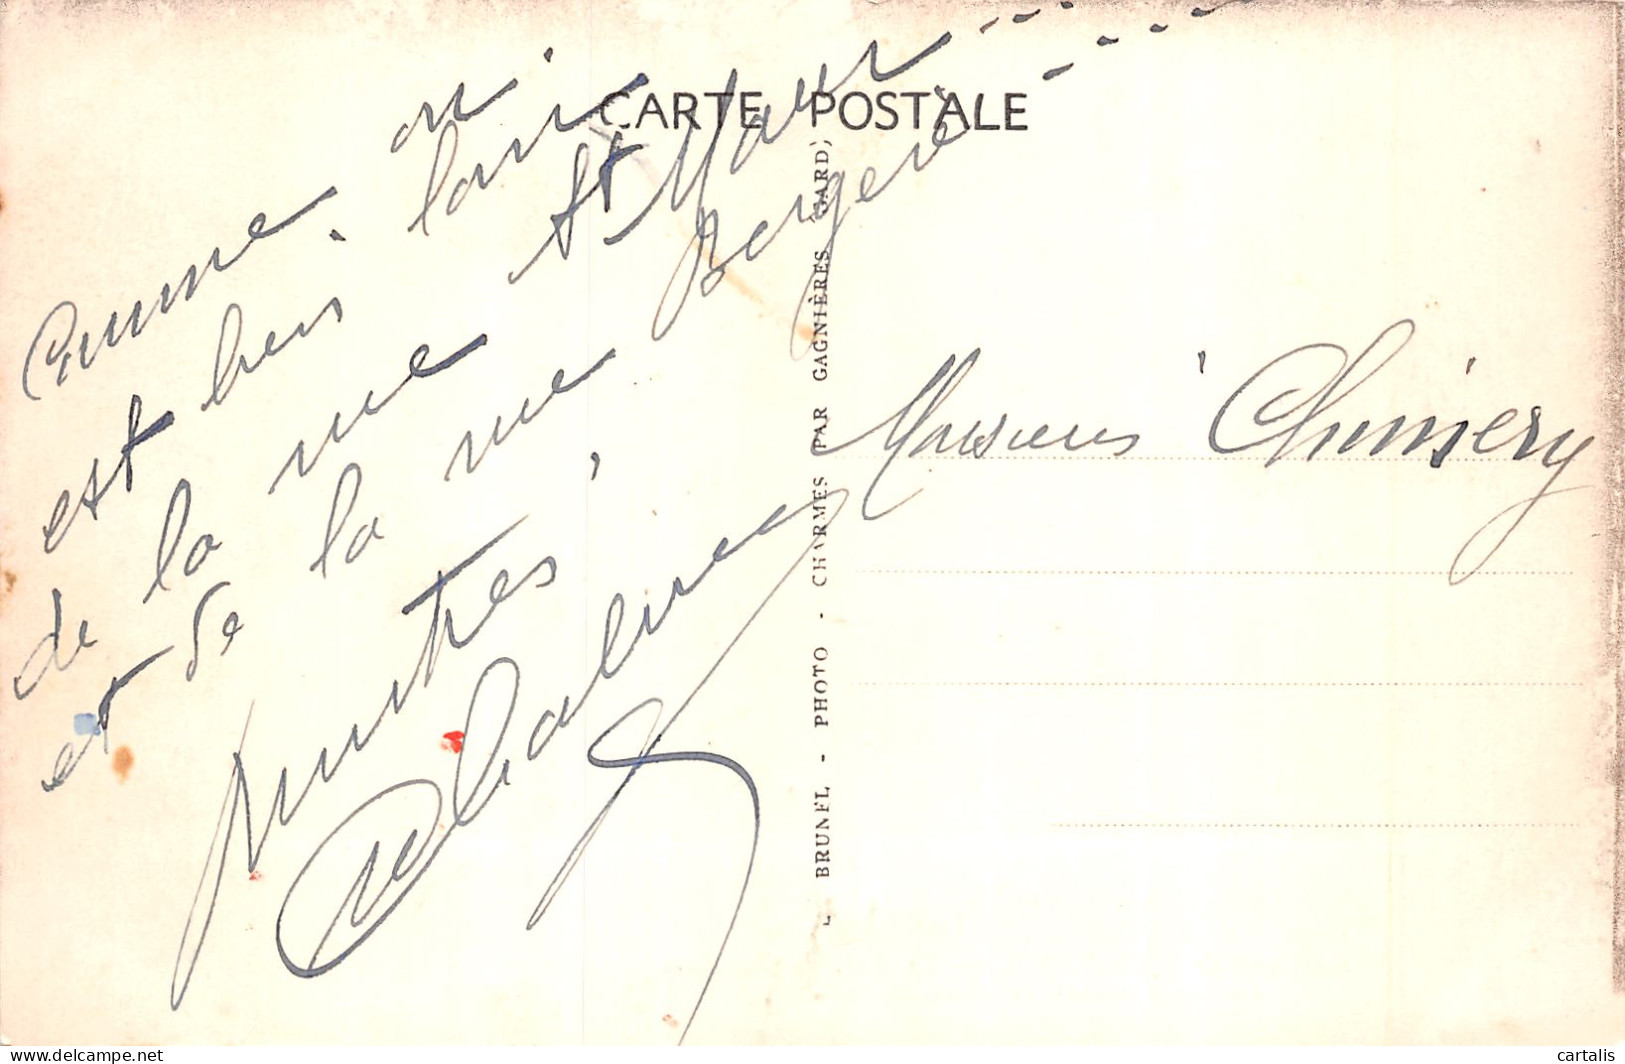 CARTE POSTALE
Comme on
est bien loin
de la rue St Maur
et de la rue Bergère
Monsieur Chimery
BRUNEL - PHOTO - CHARMES PAR GAGNIÈRES GARD)
cartalis
www.delcampe.net